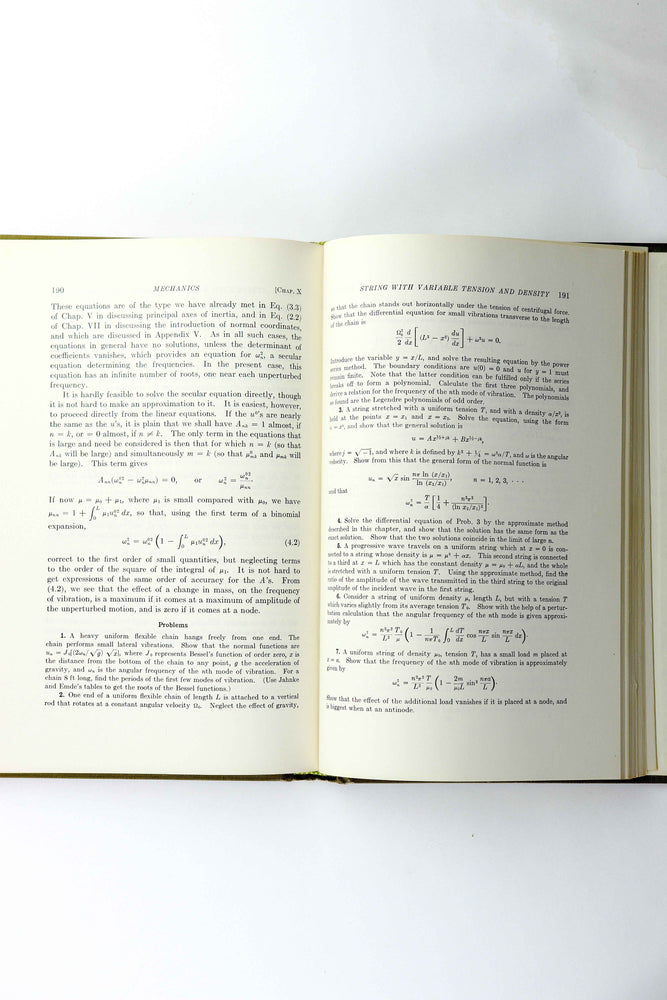 190 MECHANICS [CHAP. X
These equations are of the type we have already met in Eq. (3.3)
of Chap. V in discussing principal axes of inertia, and in Eq. (2.2)
of Chap. VII in discussing the introduction of normal coordinates,
and which are discussed in Appendix V. As in all such cases, the
equations in general have no solutions, unless the determinant of
coefficients vanishes, which provides an equation for ω²ₙ, a secular
equation determining the frequencies. In the present case, this
equation has an infinite number of roots, one near each unperturbed
frequency.
It is hardly feasible to solve the secular equation directly, though
it is not hard to make an approximation to it. It is easiest, however,
to proceed directly from the linear equations. If the u⁰'s are nearly
the same as the u's, it is plain that we shall have Aₙₖ = 1 almost, if
n = k, or = 0 almost, if n ≠ k. The only term in the equations that
is large and need be considered is then that for which n = k (so that
Aₙₖ will be large) and simultaneously m = k (so that μ⁰ₘₖ and μₘₖ will
be large). This term gives
Aₙₙ(ωₙ⁰² − ωₙ²μₙₙ) = 0, or ωₙ² = ωₙ⁰²/μₙₙ.
If now μ = μ₀ + μ₁, where μ₁ is small compared with μ₀, we have
μₙₙ = 1 + ∫₀ᴸ μ₁uₙ⁰² dx, so that, using the first term of a binomial
expansion,
ωₙ² = ωₙ⁰² (1 − ∫₀ᴸ μ₁uₙ⁰² dx), (4.2)
correct to the first order of small quantities, but neglecting terms
to the order of the square of the integral of μ₁. It is not hard to
get expressions of the same order of accuracy for the A's. From
(4.2), we see that the effect of a change in mass, on the frequency
of vibration, is a maximum if it comes at a maximum of amplitude of
the unperturbed motion, and is zero if it comes at a node.
Problems
1. A heavy uniform flexible chain hangs freely from one end. The
chain performs small lateral vibrations. Show that the normal functions are
uₙ = J₀[(2ωₙ/√g) √x], where J₀ represents Bessel's function of order zero, x is
the distance from the bottom of the chain to any point, g the acceleration of
gravity, and ωₙ is the angular frequency of the nth mode of vibration. For a
chain 8 ft long, find the periods of the first few modes of vibration. (Use Jahnke
and Emde's tables to get the roots of the Bessel functions.)
2. One end of a uniform flexible chain of length L is attached to a vertical
rod that rotates at a constant angular velocity Ω₀. Neglect the effect of gravity,
STRING WITH VARIABLE TENSION AND DENSITY 191
so that the chain stands out horizontally under the tension of centrifugal force.
Show that the differential equation for small vibrations transverse to the length
of the chain is
Ω₀²/2 d/dx [(L² − x²) du/dx] + ω²u = 0.
Introduce the variable y = x/L, and solve the resulting equation by the power
series method. The boundary conditions are u(0) = 0 and u for y = 1 must
remain finite. Note that the latter condition can be fulfilled only if the series
breaks off to form a polynomial. Calculate the first three polynomials, and
derive a relation for the frequency of the nth mode of vibration. The polynomials
so found are the Legendre polynomials of odd order.
3. A string stretched with a uniform tension T, and with a density α/x², is
held at the points x = x₁ and x = x₂. Solve the equation, using the form
= xⁿ, and show that the general solution is
u = Ax^(½+jk) + Bx^(½−jk),
where j = √−1, and where k is defined by k² + ¼ = ω²α/T, and ω is the angular
velocity. Show from this that the general form of the normal function is
uₙ = √x sin nπ ln (x/x₁)/ln (x₂/x₁), n = 1, 2, 3, · · ·
and that
ωₙ² = T/α [1/4 + n²π²/(ln x₂/x₁)²].
4. Solve the differential equation of Prob. 3 by the approximate method
described in this chapter, and show that the solution has the same form as the
exact solution. Show that the two solutions coincide in the limit of large n.
5. A progressive wave travels on a uniform string which at x = 0 is con-
nected to a string whose density is μ = μ⁰ + αx. This second string is connected
to a third at x = L which has the constant density μ = μ₀ + αL, and the whole
is stretched with a uniform tension T. Using the approximate method, find the
ratio of the amplitude of the wave transmitted in the third string to the original
amplitude of the incident wave in the first string.
6. Consider a string of uniform density μ, length L, but with a tension T
which varies slightly from its average tension T₀. Show with the help of a pertur-
bation calculation that the angular frequency of the nth mode is given approxi-
mately by
ωₙ² = n²π²/L² T₀/μ (1 − 1/nπT₀ ∫₀ᴸ dT/dx cos nπx/L sin nπx/L dx).
7. A uniform string of density μ₀, tension T, has a small load m placed at
x = a. Show that the frequency of the nth mode of vibration is approximately
given by
ωₙ² = n²π²/L² T/μ₀ (1 − 2m/μ₀L sin² nπa/L).
Show that the effect of the additional load vanishes if it is placed at a node, and
is biggest when at an antinode.